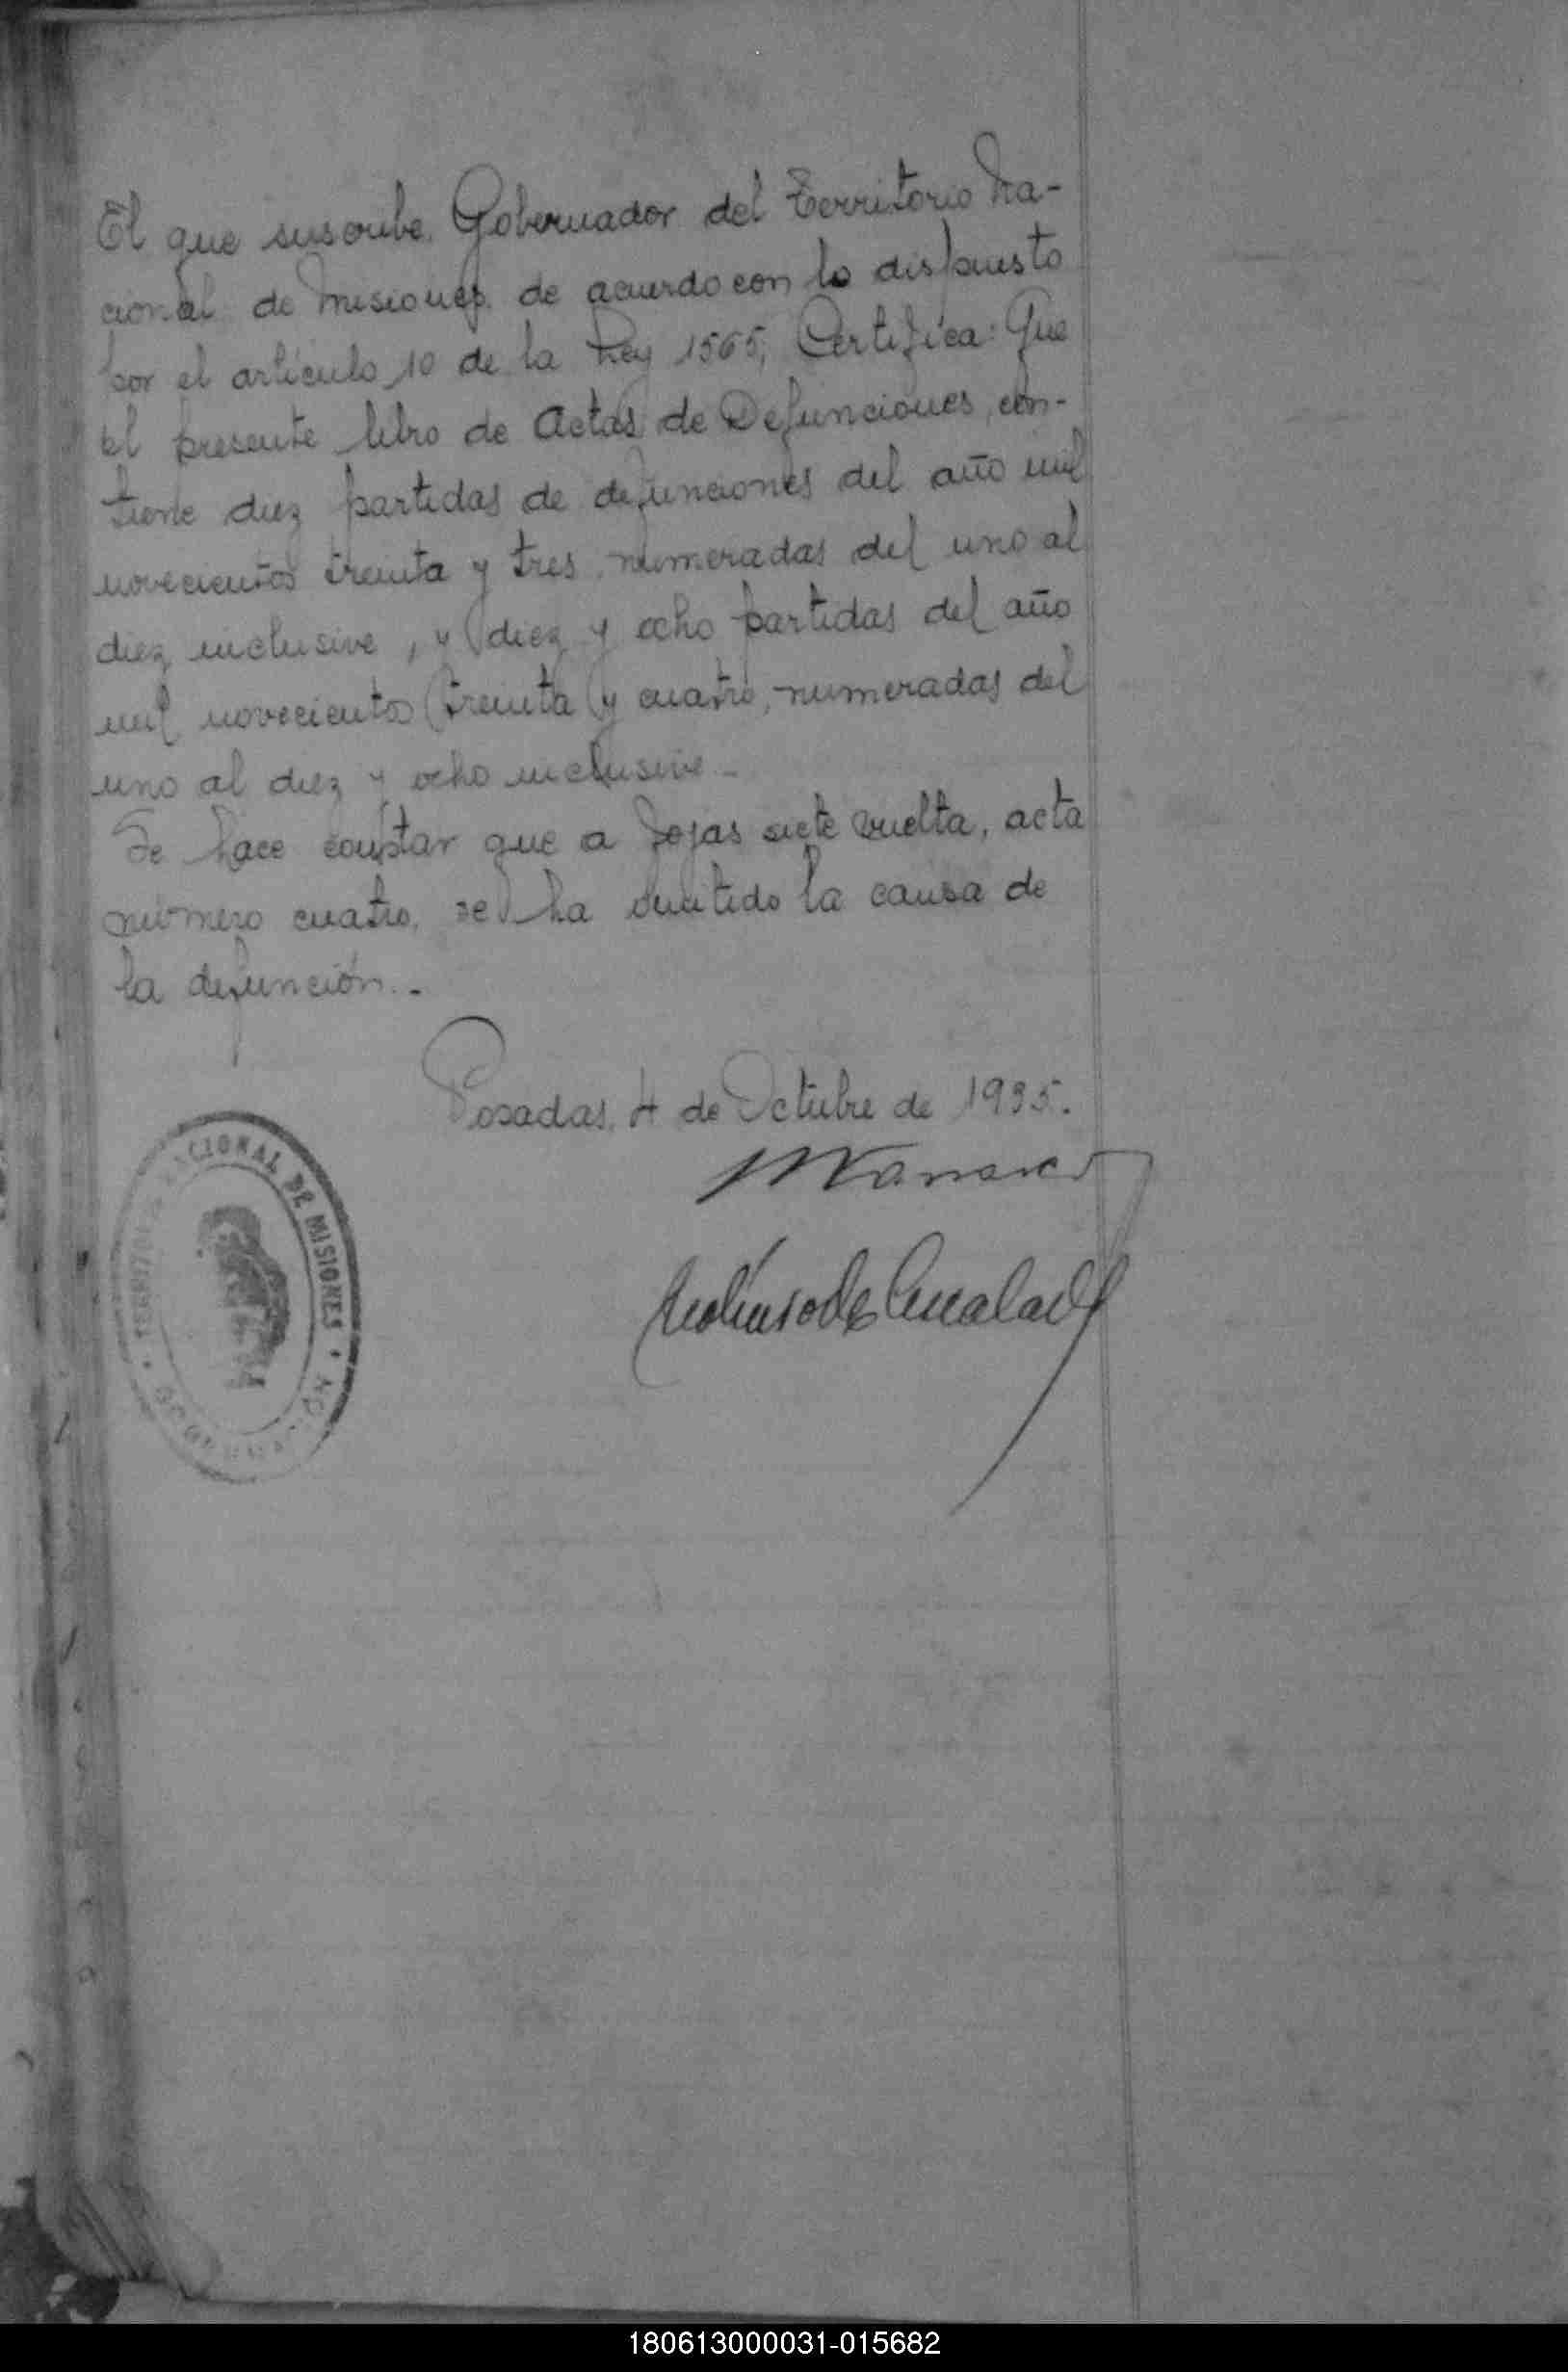 El que suscribe, Gobernador del Territorio Na-
cional de Misiones, de acuerdo con lo dispuesto
por el artículo 10 de la Ley 1565, Certifica: Que
el presente libro de Actas de Defunciones, con-
tiene diez partidas de defunciones del año mil
novecientos treinta y tres, numeradas del uno al
diez inclusive, y diez y ocho partidas del año
mil novecientos treinta y cuatro, numeradas del
uno al diez y ocho inclusive.-
Se hace constar que a fojas siete vuelta, acta
número cuatro, se ha omitido la causa de
la defunción.-
Posadas, 4 de Octubre de 1935.
NACIONAL DE MISIONES
180613000031-015682